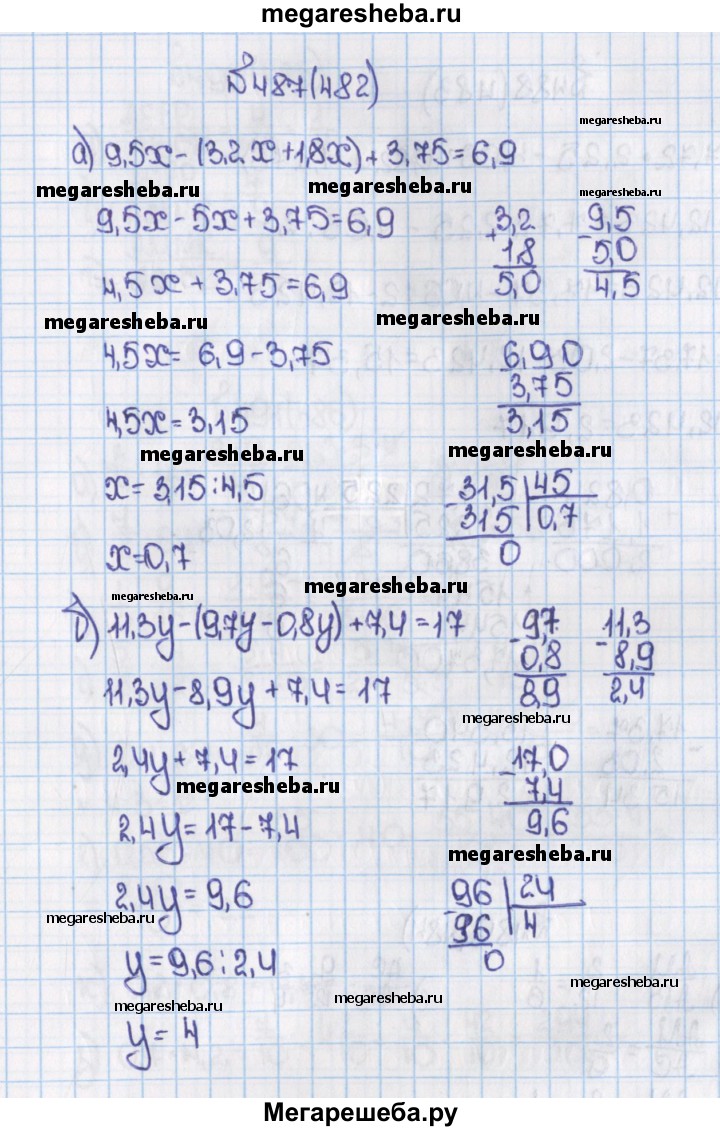 megaresheba.ru
№487(482)
megaresheba.ru
а) 9,5x - (3,2x + 1,8x) + 3,75 = 6,9
megaresheba.ru megaresheba.ru megaresheba.ru
9,5x - 5x + 3,75 = 6,9
3,2 9,5
+ 1,8 - 5,0
5,0 4,5
4,5x + 3,75 = 6,9
megaresheba.ru megaresheba.ru
4,5x = 6,9 - 3,75
6,90
3,75
3,15
4,5x = 3,15
megaresheba.ru megaresheba.ru
x = 3,15 : 4,5
- 31,5 | 45
315 | 0,7
0
x = 0,7
megaresheba.ru megaresheba.ru
б) 11,3y - (9,7y - 0,8y) + 7,4 = 17
- 9,7 - 11,3
0,8 8,9
8,9 2,4
11,3y - 8,9y + 7,4 = 17
megaresheba.ru
2,4y + 7,4 = 17
megaresheba.ru
- 17,0
7,4
9,6
2,4y = 17 - 7,4
megaresheba.ru
2,4y = 9,6
megaresheba.ru
- 96 | 24
96 | 4
0
y = 9,6 : 2,4
megaresheba.ru megaresheba.ru megaresheba.ru
y = 4
Мегарешеба.ру